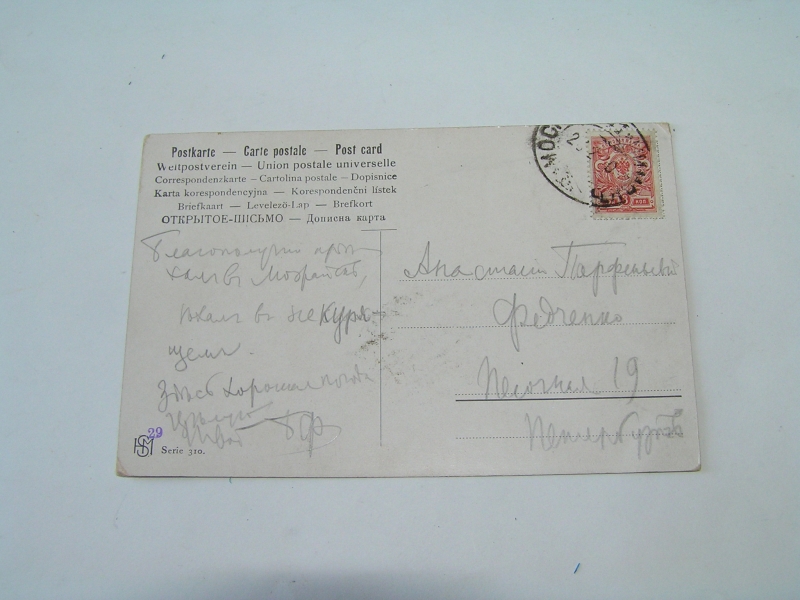 Postkarte — Carte postale — Post card
Weltpostverein — Union postale universelle
Correspondenzkarte — Cartolina postale — Dopisnice
Karta korespondencyjna — Korespondenční lístek
Briefkaart — Levelező-Lap — Brefkort
ОТКРЫТОЕ-ПИСЬМО — Дописна карта
Благополучно при-
халъ в Можайскъ,
ѣхалъ въ некуря-
щемъ.
Здѣсь хорошая погода
Цѣлую
Твой БФ
29
Serie 310.
МОС
Анастасіи Парфеньевнѣ
Федченко
Песочная 19
Петербургъ